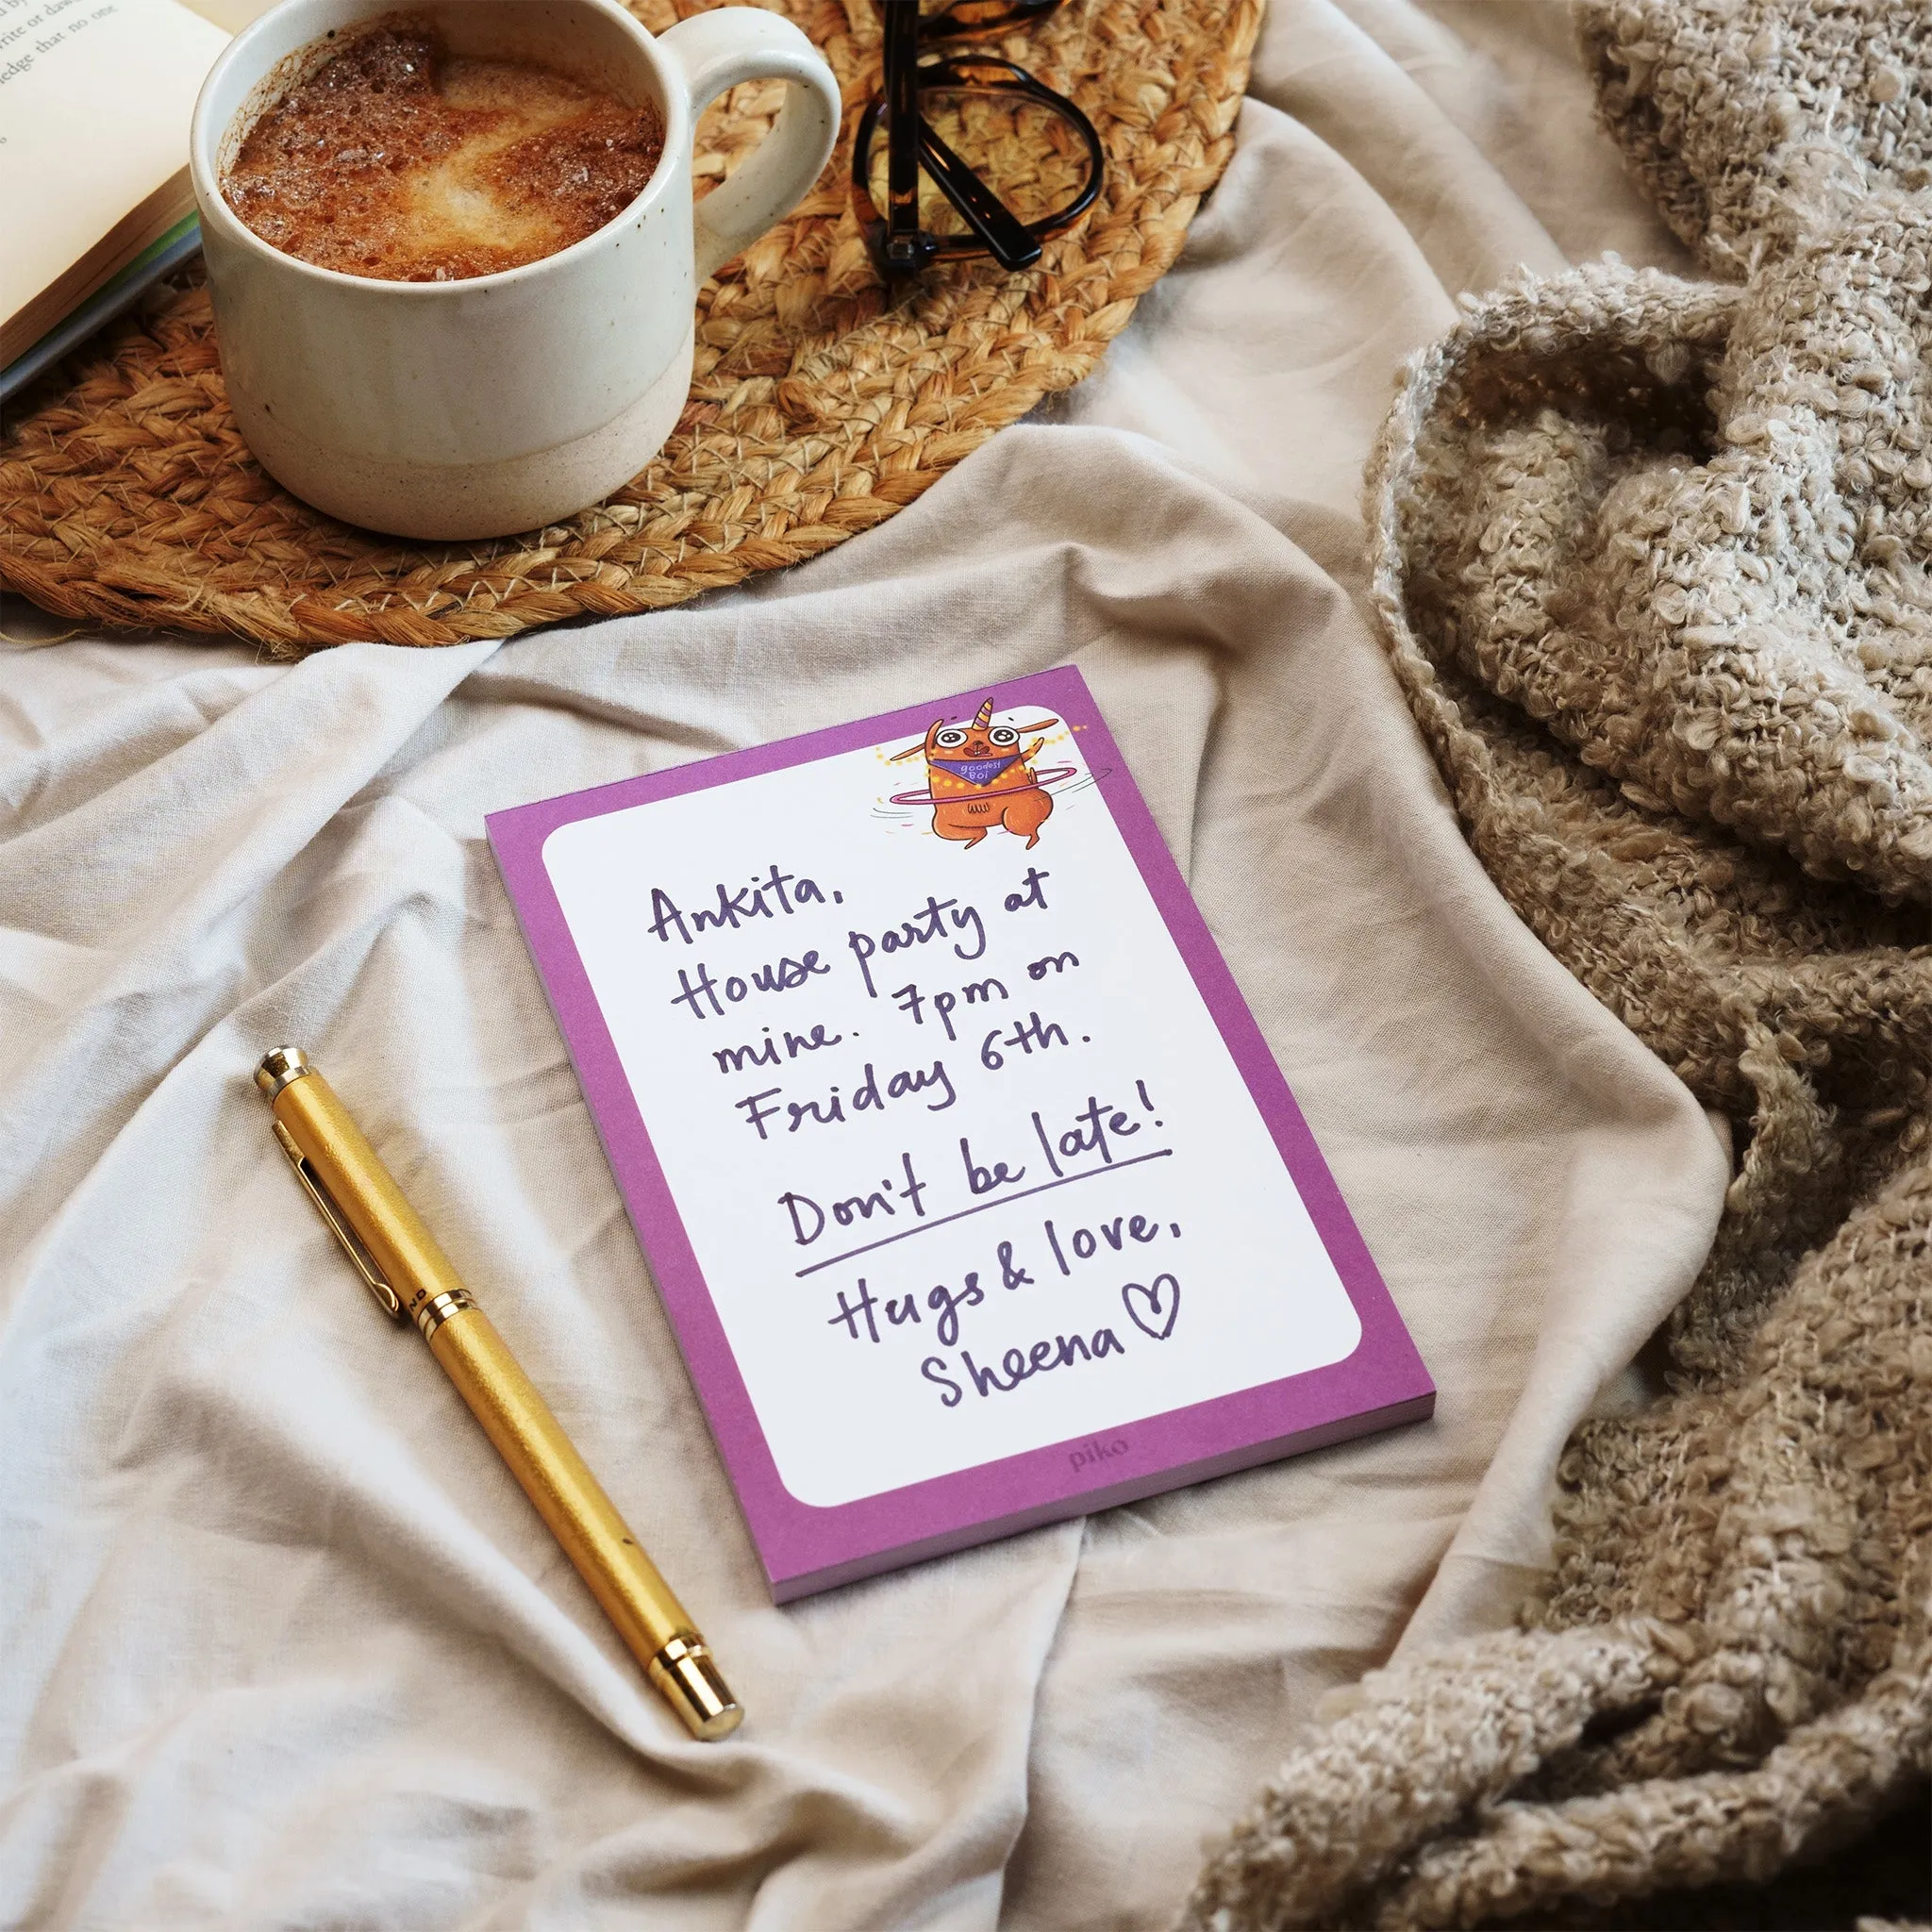 that no one
goodest
BOi
Ankita,
House party at
mine. 7pm on
Friday 6th.
Don't be late!
Hugs & love,
Sheena
piko